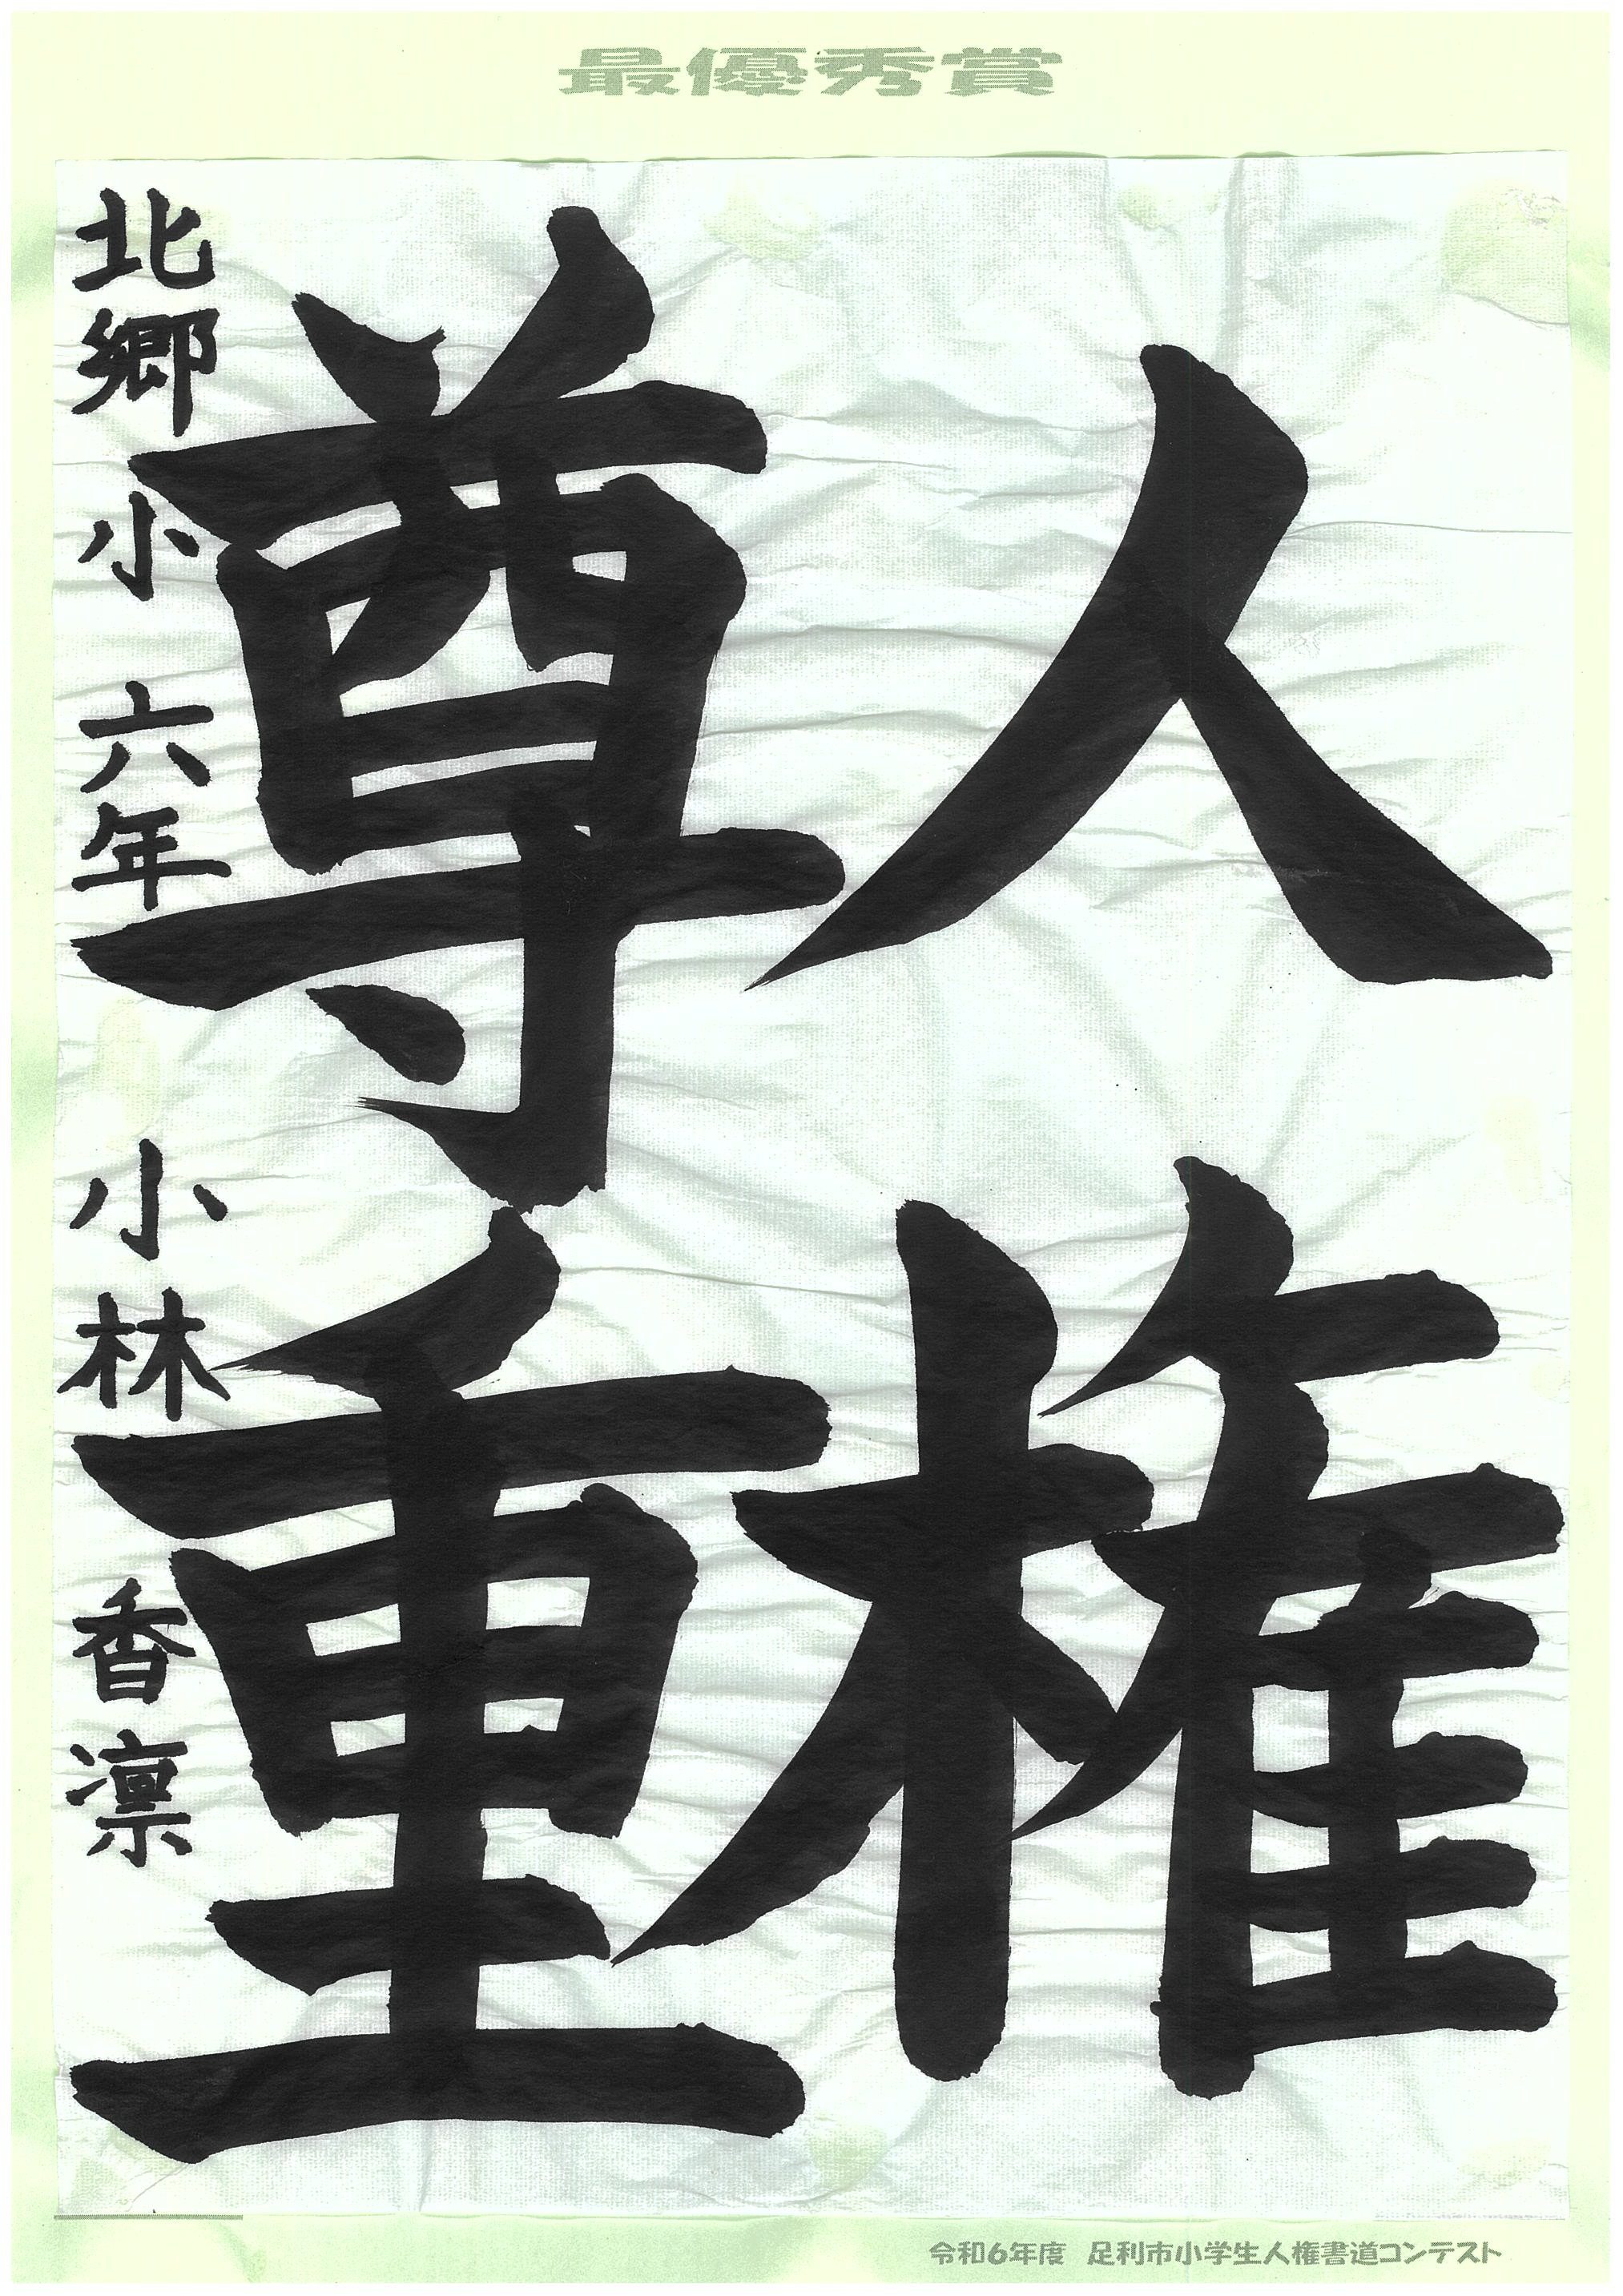 最優秀賞
人権
尊重
北郷小 六年 小林 香凛
令和6年度 足利市小学生人権書道コンテスト